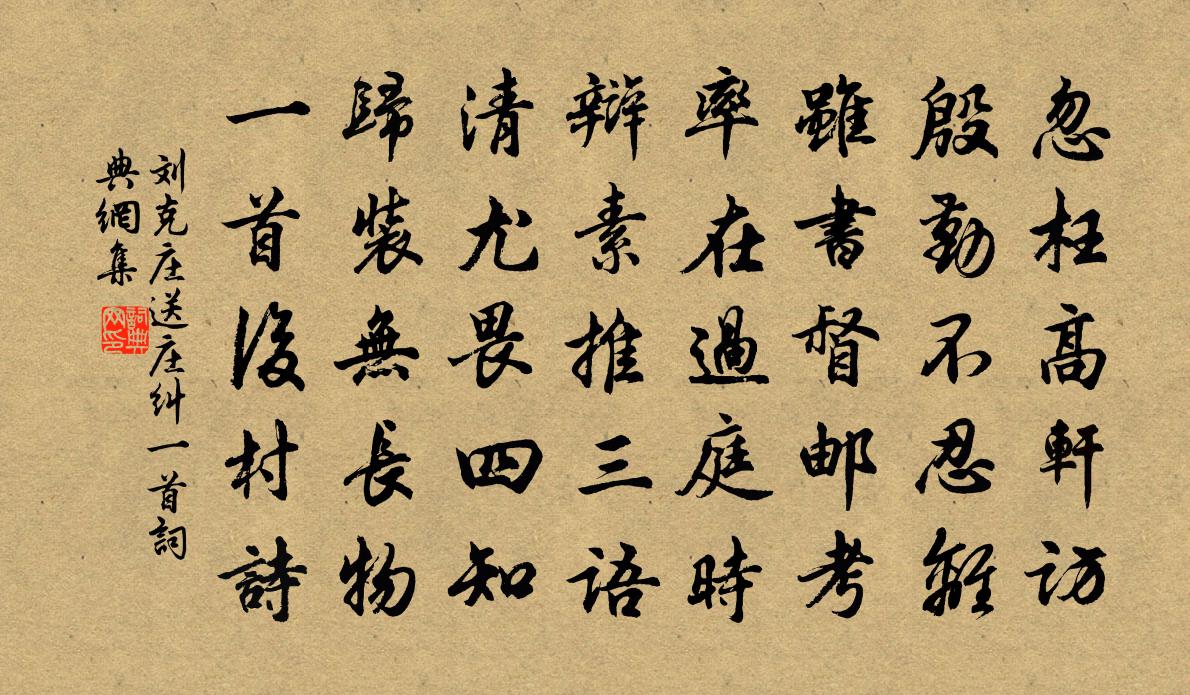 忽枉高軒訪
殷勤不忍離
雖書督邮考
率在過庭時
辯素推三语
清尤畏四知
歸裝無長物
一首後村詩
刘克庄送庄糾一首詞
典網集
詞典
网印